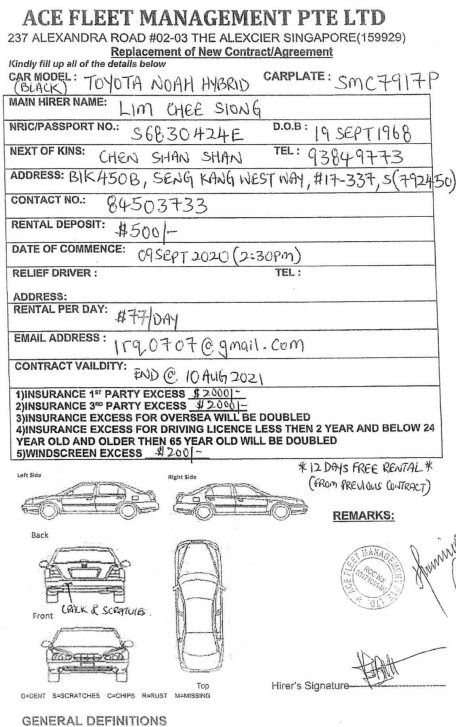 ACE FLEET MANAGEMENT PTE LTD
237 ALEXANDRA ROAD #02-03 THE ALEXCIER SINGAPORE(159929)
Replacement of New Contract/Agreement
Kindly fill up all of the details below
CAR MODEL : TOYOTA NOAH HYBRID CARPLATE : SMC7917P
(BLACK)
MAIN HIRER NAME: LIM CHEE SIONG
NRIC/PASSPORT NO.: S6830424E D.O.B : 19 SEPT 1968
NEXT OF KINS: CHEN SHAN SHAN TEL : 93849773
ADDRESS: BLK450B, SENG KANG WEST WAY, #17-337, S(792450)
CONTACT NO.: 84503733
RENTAL DEPOSIT: $500/-
DATE OF COMMENCE: 09 SEPT 2020 (2:30PM)
RELIEF DRIVER : TEL :
ADDRESS:
RENTAL PER DAY: $77/DAY
EMAIL ADDRESS : irq0707@gmail.com
CONTRACT VAILDITY: END @ 10 AUG 2021
1)INSURANCE 1ST PARTY EXCESS $2000/-
2)INSURANCE 3RD PARTY EXCESS $2000/-
3)INSURANCE EXCESS FOR OVERSEA WILL BE DOUBLED
4)INSURANCE EXCESS FOR DRIVING LICENCE LESS THEN 2 YEAR AND BELOW 24
YEAR OLD AND OLDER THEN 65 YEAR OLD WILL BE DOUBLED
5)WINDSCREEN EXCESS $200/-
* 12 DAYS FREE RENTAL *
(FROM PREVIOUS CONTRACT)
Left Side Right Side
REMARKS:
Back
ACE FLEET MANAGEMENT PTE. LTD.
CRACK & SCRATCHES.
Front
Top
Hirer's Signature
D=DENT S=SCRATCHES C=CHIPS R=RUST M=MISSING
GENERAL DEFINITIONS